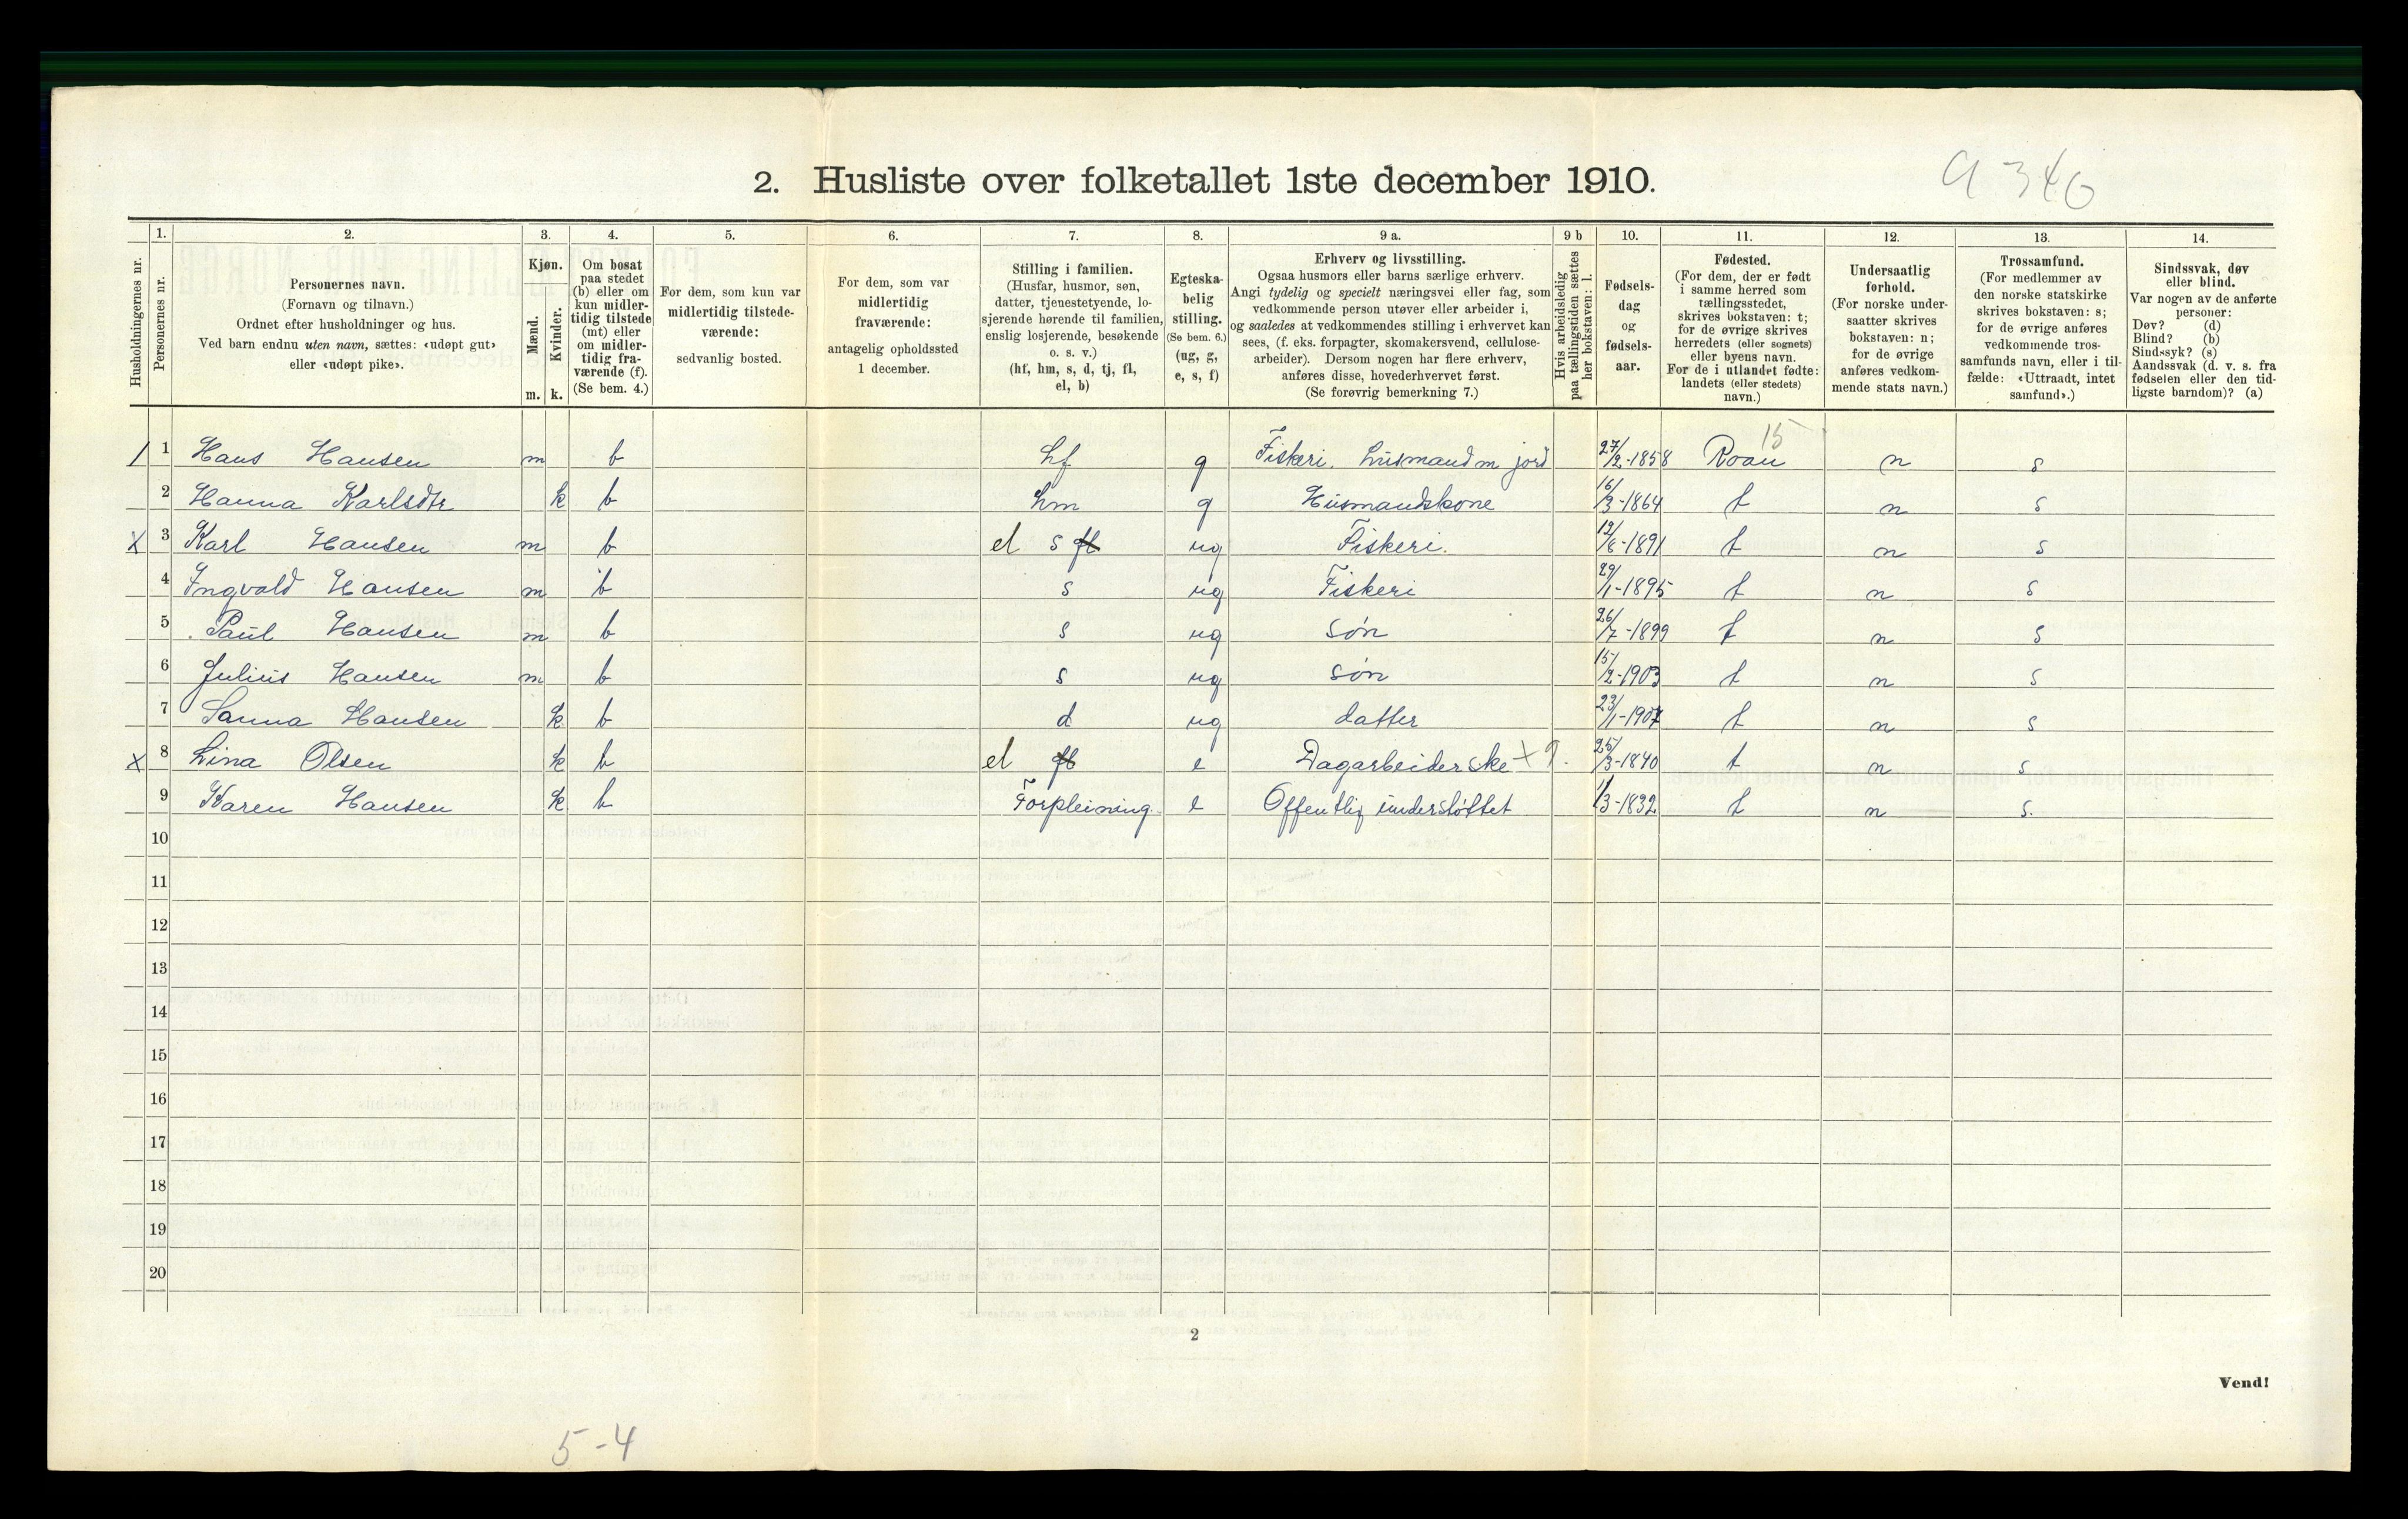 a 346
2. Husliste over folketallet 1ste december 1910.
Husholdningernes nr.
1. Personernes nr.
2. Personernes navn.
(Fornavn og tilnavn.)
Ordnet efter husholdninger og hus.
Ved barn endnu uten navn, sættes: «udøpt gut»
eller «udøpt pike».
3. Kjøn.
Mænd. m.
Kvinder. k.
4. Om bosat
paa stedet
(b) eller om
kun midler-
tidig tilstede
(mt) eller
om midler-
tidig fra-
værende (f).
(Se bem. 4.)
5. For dem, som kun var
midlertidig tilstede-
værende:
sedvanlig bosted.
6. For dem, som var
midlertidig
fraværende:
antagelig opholdssted
1 december.
7. Stilling i familien.
(Husfar, husmor, søn,
datter, tjenestetyende, lo-
sjerende hørende til familien,
enslig losjerende, besøkende
o. s. v.)
(hf, hm, s, d, tj, fl,
el, b)
8. Egteska-
belig
stilling.
(Se bem. 6.)
(ug, g,
e, s, f)
9 a. Erhverv og livsstilling.
Ogsaa husmors eller barns særlige erhverv.
Angi tydelig og specielt næringsvei eller fag, som
vedkommende person utøver eller arbeider i,
og saaledes at vedkommendes stilling i erhvervet kan
sees, (f. eks. forpagter, skomakersvend, cellulose-
arbeider). Dersom nogen har flere erhverv,
anføres disse, hovederhvervet først.
(Se forøvrig bemerkning 7.)
9 b Hvis arbeidsledig
paa tællingstiden sættes
her bokstaven: l.
10. Fødsels-
dag
og
fødsels-
aar.
11. Fødested.
(For dem, der er født
i samme herred som
tællingsstedet,
skrives bokstaven: t;
for de øvrige skrives
herredets (eller sognets)
eller byens navn.
For de i utlandet fødte:
landets (eller stedets)
navn.)
12. Undersaatlig
forhold.
(For norske under-
saatter skrives
bokstaven: n;
for de øvrige
anføres vedkom-
mende stats navn.)
13. Trossamfund.
(For medlemmer av
den norske statskirke
skrives bokstaven: s;
for de øvrige anføres
vedkommende tros-
samfunds navn, eller i til-
fælde: «Uttraadt, intet
samfund».)
14. Sindssvak, døv
eller blind.
Var nogen av de anførte
personer:
Døv? (d)
Blind? (b)
Sindssyk? (s)
Aandssvak (d. v. s. fra
fødselen eller den tid-
ligste barndom)? (a)
15
1 1 Hans Hansen m b hf g Fiskeri. husmand m jord 27/2-1858 Roan n s
2 Hanna Karlsdtr k b hm g Husmandskone 16/3-1864 t n s
x 3 Karl Hansen m b el s fl ug Fiskeri. 12/6-1891 t n s
4 Ingvald Hansen m b s ug Fiskeri 29/1-1895 t n s
5 Paul Hansen m b s ug søn 26/7-1899 t n s
6 Julius Hansen m b s ug søn 15/2-1903 t n s
7 Sanna Hansen k b d ug datter 23/1-1907 t n s
x 8 Lina Olsen k b el fl e Dagarbeiderske 25/3-1840 t n s
9 Karen Hansen k b Forpleining. e Offentlig understøttet 1/3-1832 t n s.
10
11
12
13
14
15
16
17
18
19
20
2
Vend!
5-4